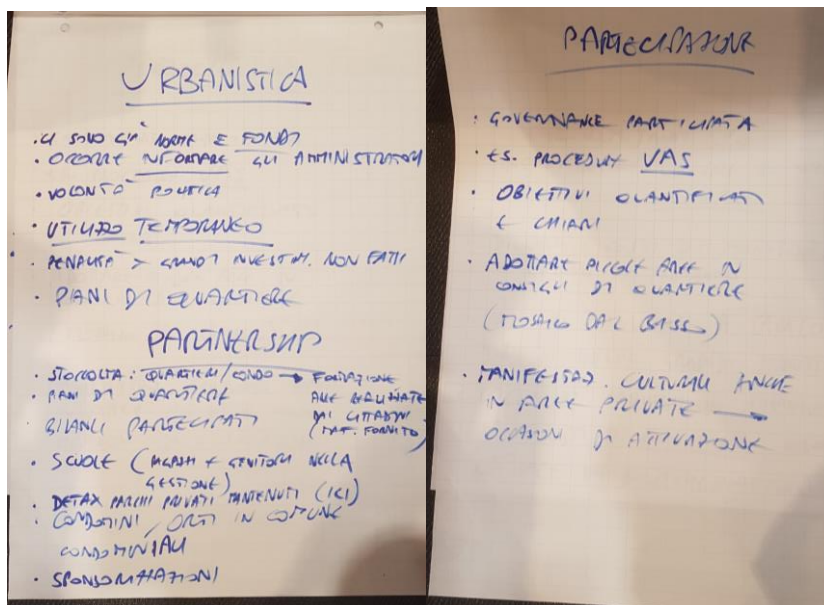 URBANISTICA
• CI SONO GIA' NORME E FONDI
• OCCORRE INFORMARE GLI AMMINISTRATORI
• VOLONTA' POLITICA
• UTILIZZO TEMPORANEO
• PENALITA' > GRANDI INVESTIM. NON FATTI
• PIANI DI QUARTIERE
PARTNERSHIP
• STOCCOLTA: QUARTIERI/CONDO → FORMAZIONE
• PIANI DI QUARTIERE AREE REALIZZATE
BILANCI PARTECIPATI DAI CITTADINI
(MAT. FORNITO)
• SCUOLE ( + GENITORI NELLA
GESTIONE)
• DETAX PARCHI PRIVATI MANTENUTI (ICI)
• CONDOMINI, ORTI IN COMUNE
CONDOMINIALI
• SPONSORIZZAZIONI
PARTECIPAZIONE
• GOVERNANCE PARTECIPATA
• ES. PROCEDURE VAS
• OBIETTIVI QUANTIFICATI
E CHIARI
• ADOTTARE PICCOLE AREE IN
CONSIGLI DI QUARTIERE
(MOSAICO DAL BASSO)
• MANIFESTAZ. CULTURALI ANCHE
IN AREE PRIVATE →
OCCASIONI DI ATTIVAZIONE